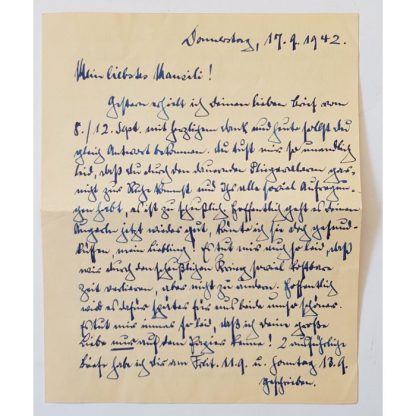 Donnerstag, 17.9.1942.
Mein liebstes Mausili!
Gestern erhielt ich Deinen lieben Brief vom
8./12. Sept. mit herzlichem Dank und heute sollst Du
gleich Antwort bekommen. Du tust mir so unendlich
leid, daß Du durch den dauernden Fliegeralarm gar
nicht zur Ruhe kommst und Ihr alle soviel Aufregun-
gen habt, es ist zu scheußlich. Hoffentlich geht es Deinen
jetzt wieder gut, könnte ich sie doch gesund-
küssen, mein Liebling! Es tut mir auch so leid, daß
wir durch den scheußlichen Krieg soviel kostbare
Zeit verlieren, aber nicht zu ändern. Hoffentlich
wird es dafür später für uns beide umso schöner.
Es tut mir immer so leid, daß ich Deine große
Liebe nur auf dem Papier kenne! 2 ausführliche
Briefe habe ich Dir am Freit. 11.9. u. Sonntag 13.9.
geschrieben.